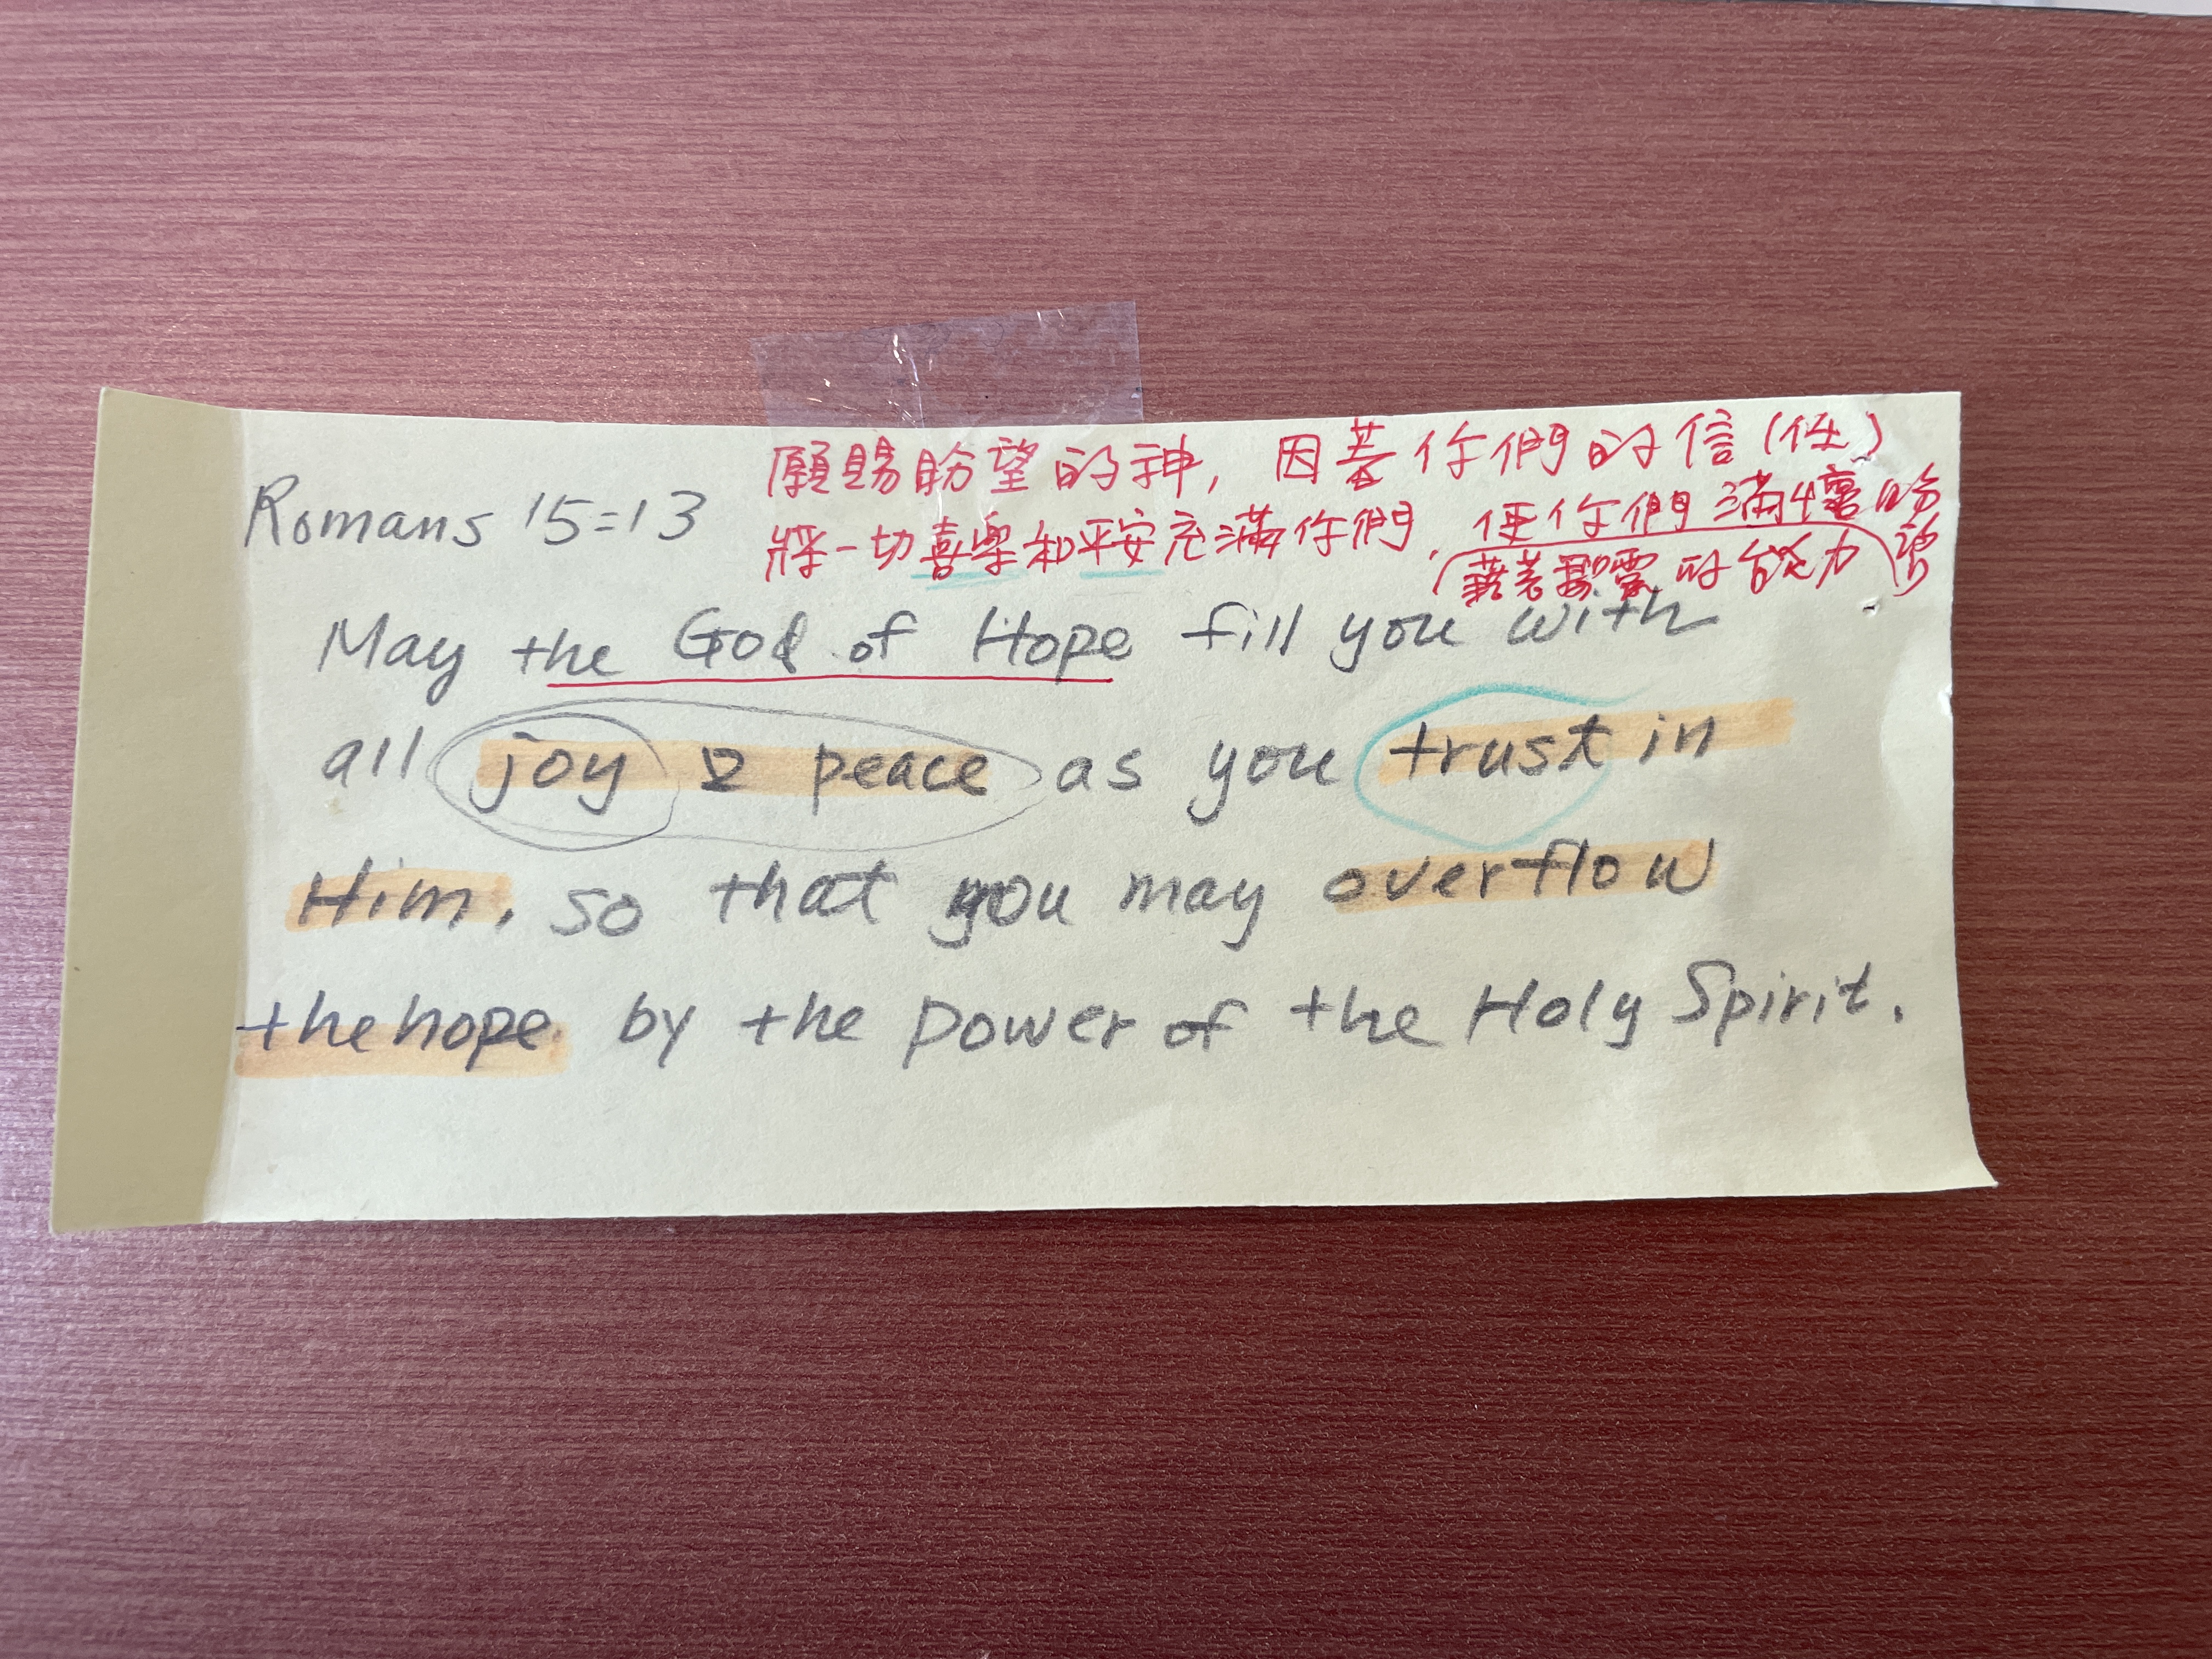 願賜盼望的神, 因著你們的信(任)
Romans 15=13
將一切喜樂和平安充滿你們, 使你們滿懷盼望
(藉著聖靈的能力)
May the God of Hope fill you with
all joy & peace as you trust in
Him, so that you may overflow
the hope by the power of the Holy Spirit.